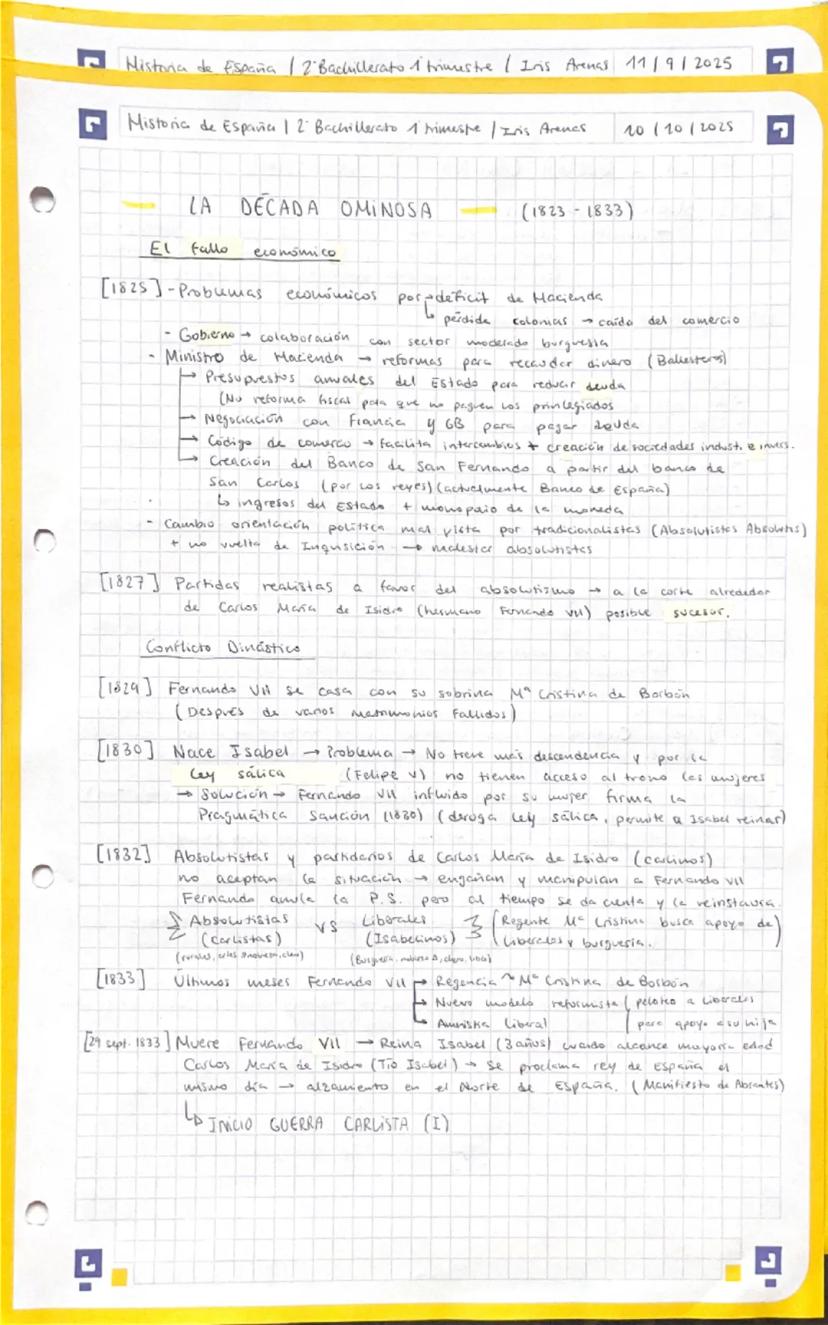 Historia de España / 2º Bachillerato 1º trimestre / Iris Arenas 11/9/2025
Historia de España / 2º Bachillerato 1º trimestre / Iris Arenas 10/10/2025
LA DÉCADA OMINOSA — (1823 - 1833)
El fallo económico
[1825] - Problemas económicos por → déficit de Hacienda
↳ pérdida colonias → caída del comercio
- Gobierno → colaboración con sector moderado burguesía
- Ministro de Hacienda → reformas para recaudar dinero (Ballesteros)
→ Presupuestos anuales del Estado para reducir deuda
(No reforma fiscal para que no paguen los privilegiados
→ Negociación con Francia y GB para pagar deuda
→ Código de comercio → facilita intercambios + creación de sociedades indust. e invers.
→ Creación del Banco de San Fernando a partir del banco de
San Carlos (por los reyes) (actualmente Banco de España)
↳ ingresos del Estado + monopolio de la moneda
- Cambio orientación política mal vista por tradicionalistas (Absolutistas Absoluts)
+ no vuelta de Inquisición → malestar absolutistas
[1827] Partidas realistas a favor del absolutismo → a la corte alrededor
de Carlos María de Isidro (hermano Fernando VII) posible sucesor.
Conflicto Dinástico
[1829] Fernando VII se casa con su sobrina Mª Cristina de Borbón
(Después de varios matrimonios fallidos)
[1830] Nace Isabel → Problema → No tiene más descendencia y por la
Ley sálica (Felipe V) no tienen acceso al trono las mujeres
→ Solución → Fernando VII influido por su mujer firma la
Pragmática Sanción (1830) (deroga ley sálica, permite a Isabel reinar)
[1832] Absolutistas y partidarios de Carlos María de Isidro (carlinos)
no aceptan la situación → engañan y manipulan a Fernando VII
Fernando anula la P.S. pero al tiempo se da cuenta y la reinstaura.
Absolutistas VS Liberales (Regente Mª Cristina busca apoyo de
(Carlistas) (Isabelinos) liberales y burguesía.)
[1833] Últimos meses Fernando VII → Regencia Mª Cristina de Borbón
→ Nuevo modelo reformista (peloteo a liberales
→ Amnistía liberal para apoyo a su hija
[29 sept. 1833] Muere Fernando VII → Reina Isabel (3 años) cuando alcance mayoría edad
Carlos María de Isidro (Tío Isabel) → se proclama rey de España el
mismo día → alzamiento en el Norte de España. (Manifiesto de Abrantes)
↳ INICIO GUERRA CARLISTA (I)